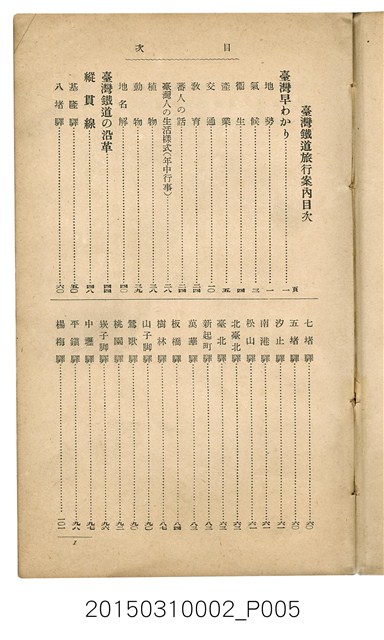 目次
臺灣鐵道旅行案內目次
臺灣早わかり……一頁
地勢……一
氣候……三
衞生……四
產業……五
交通……一〇
敎育……二四
蕃人の話……二四
臺灣人の生活樣式(年中行事)……二八
植物……三六
動物……三九
地名解……四〇
臺灣鐵道の沿革……四四
縱貫線……四八
基隆驛……五〇
八堵驛……六〇
七堵驛……六〇
五堵驛……六〇
汐止驛……六一
南港驛……六一
松山驛……六一
北臺北驛
臺北驛
新起町驛
萬華驛
板橋驛……八四
樹林驛……八七
山子脚驛……九〇
鶯歌驛……九〇
桃園驛……九二
崁子脚驛……九六
中壢驛……九七
平鎭驛……九八
楊梅驛……一〇一
1
20150310002_P005